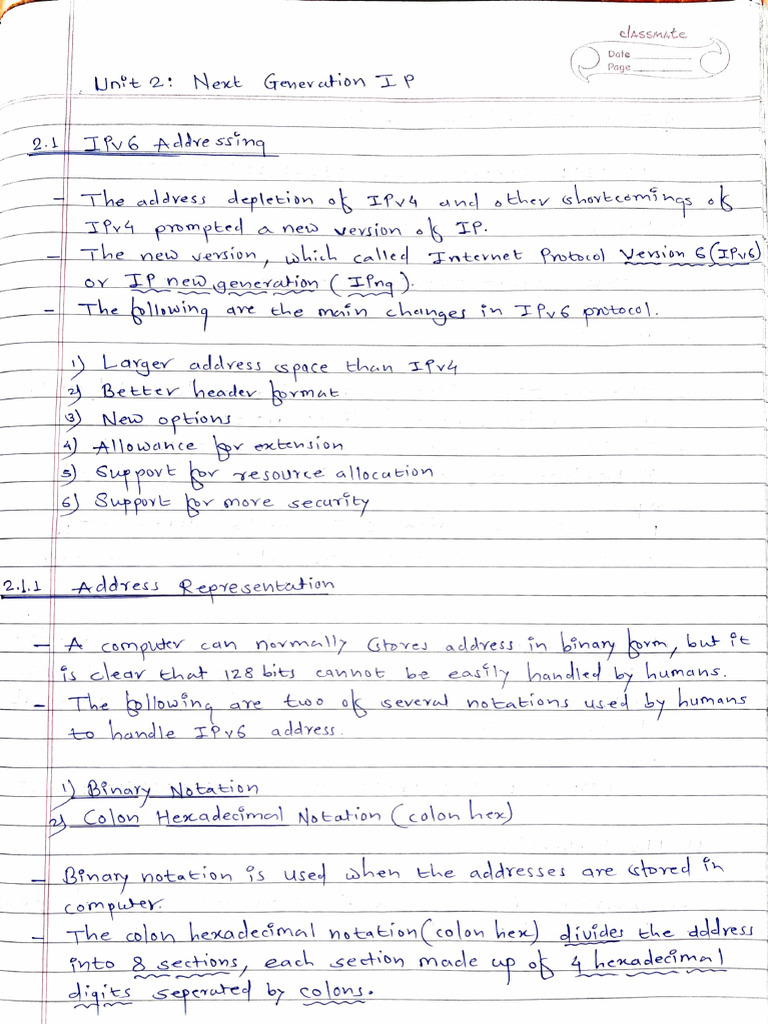 classmate
Date
Page
Unit 2: Next Generation IP
2.1 IPv6 Addressing
- The address depletion of IPv4 and other shortcomings of
IPv4 prompted a new version of IP.
- The new version, which called Internet Protocol Version 6 (IPv6)
or IP new generation (IPng).
- The following are the main changes in IPv6 protocol.
1) Larger address space than IPv4
2) Better header format
3) New options
4) Allowance for extension
5) Support for resource allocation
6) Support for more security
2.1.1 Address Representation
- A computer can normally stores address in binary form, but it
is clear that 128 bits cannot be easily handled by humans.
- The following are two of several notations used by humans
to handle IPv6 address.
1) Binary Notation
2) Colon Hexadecimal Notation (colon hex)
- Binary notation is used when the addresses are stored in
computer.
- The colon hexadecimal notation (colon hex) divides the address
into 8 sections, each section made up of 4 hexadecimal
digits seperated by colons.